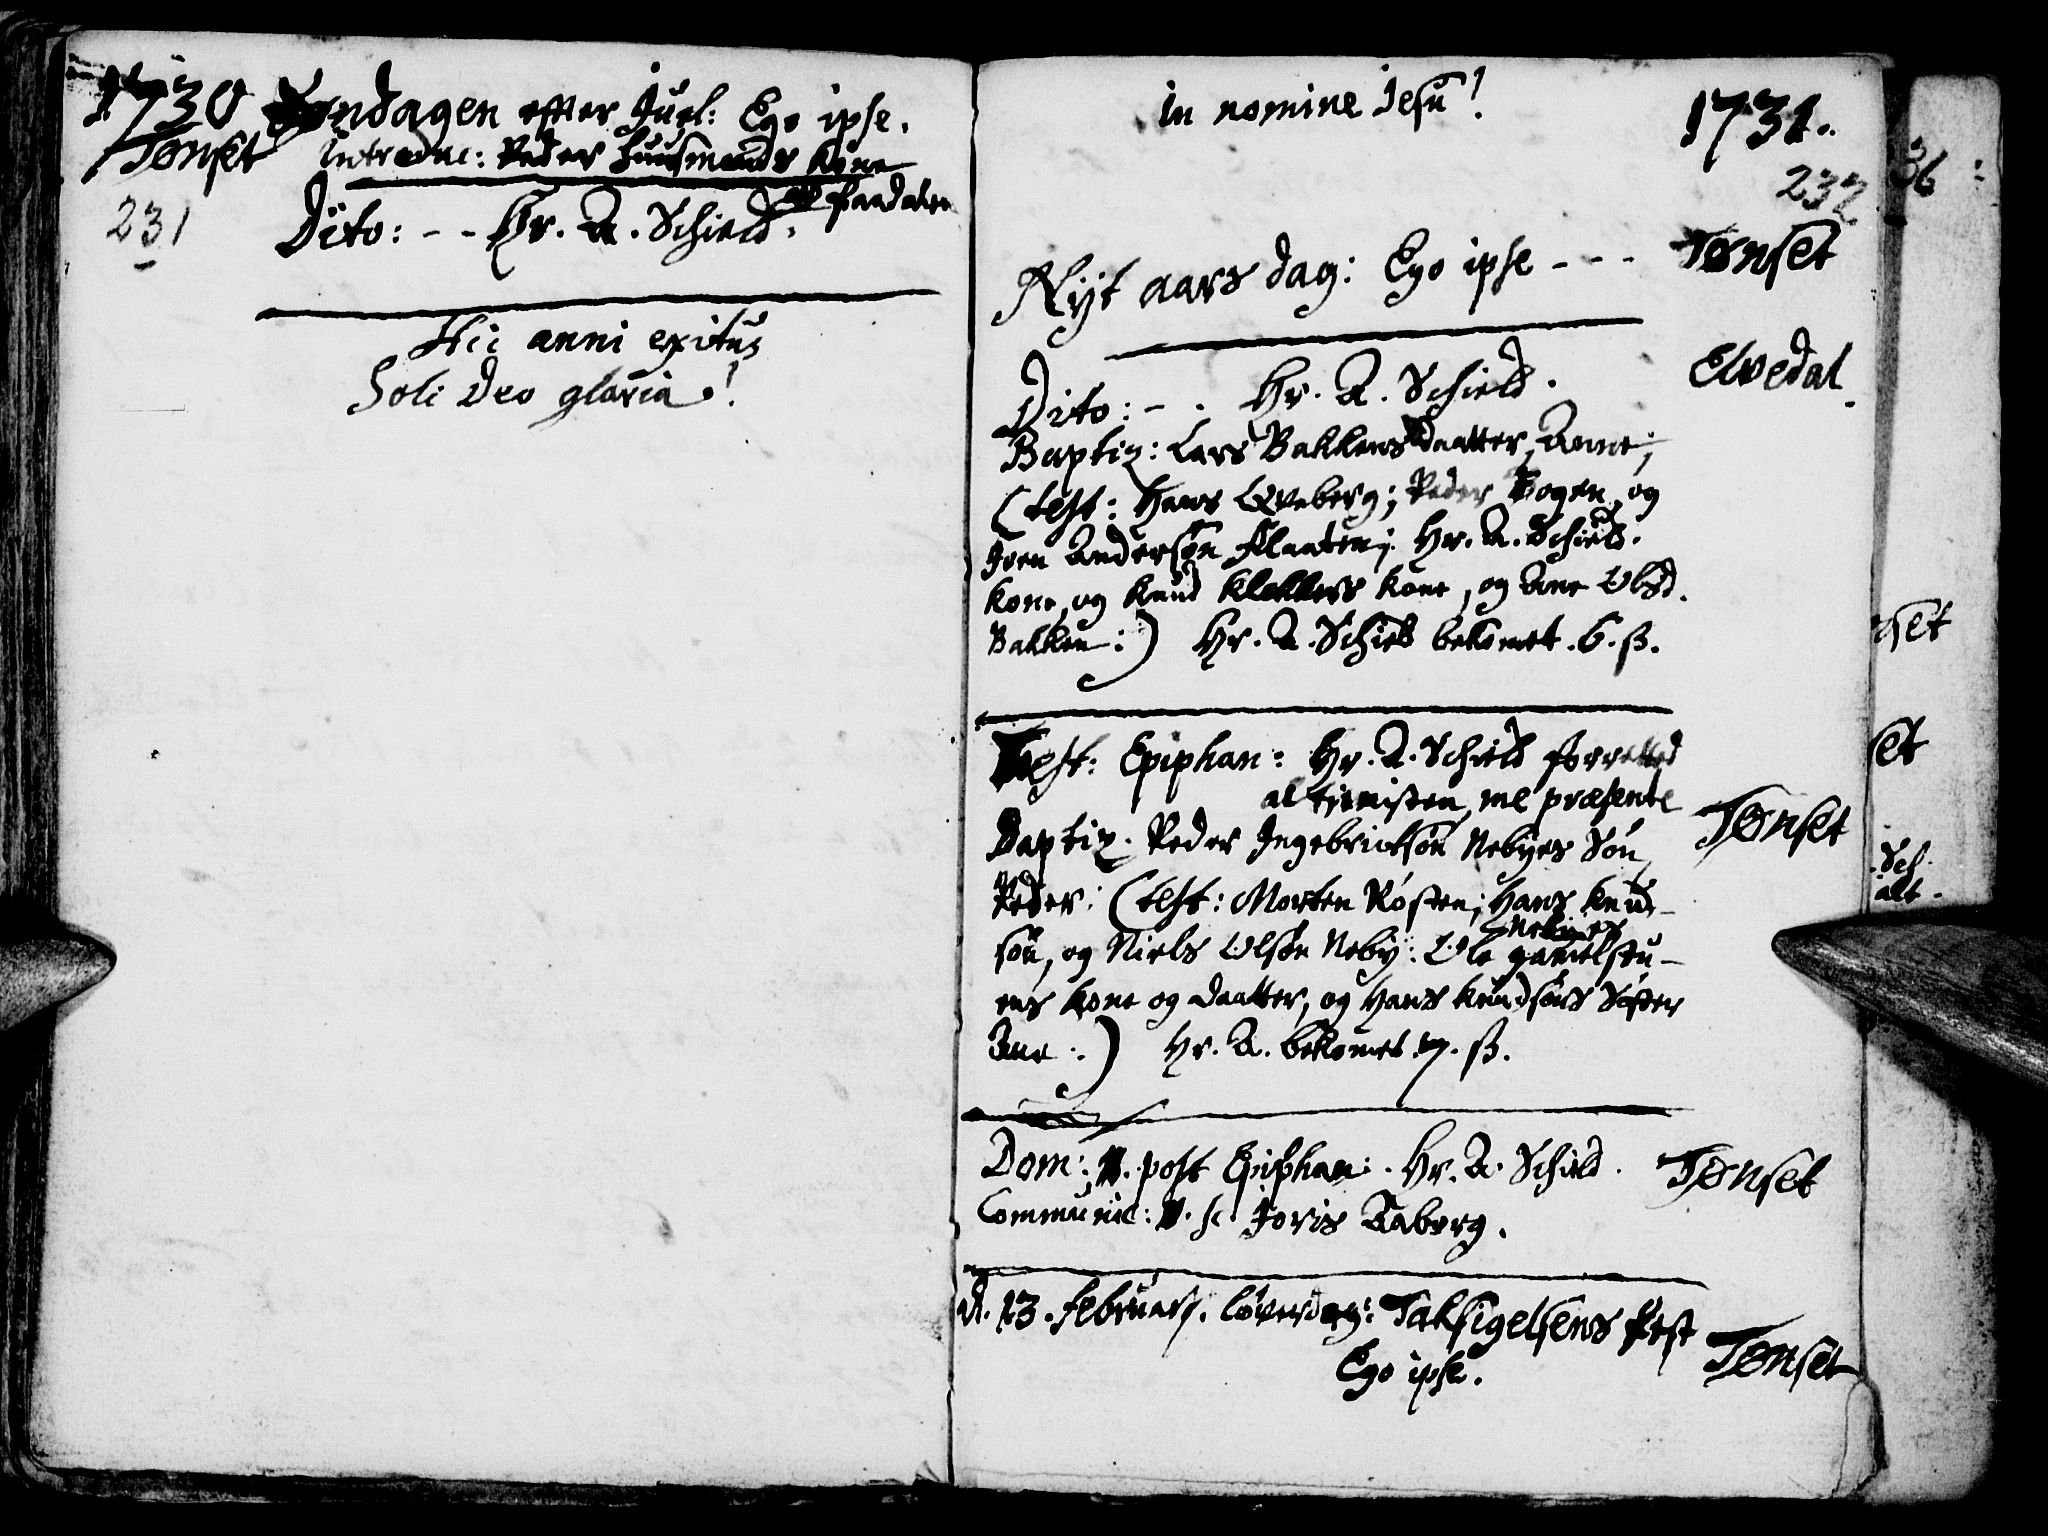 1730 Søndagen efter Juel: Ego ipse.
Tønset introduc: Peder Huusmands kone
Faadalen
231
Dito: - - Hr. A. Schield.
Hic anni exitus
Soli Deo gloria!
In nomine Jesu!
1731.
232
Nyt aars dag: Ego ipse - - - Tønset
Dito: - . Hr. A. Schield. Elvedal.
Baptiz: Lars Bakkens daatter, Anne;
(test: Hans Qveberg; Peder Bogen og
Joen Andersøn Flaaten; Hr. A. Schields
kone, og Knud Klokkers kone, og Ane Olsd.
Bakken:) Hr. A. Schield bekomet. 6. ß.
Fest: Epiphan: Hr. A. Schield forretted
al tienisten, me præsente
Tønset
Baptiz. Peder Ingebrictsøn Nebyes Søn
Peder: (test: Morten Røsten; Hans Knud-
Nebyes
søn, og Niels Olsøn Neby. Ole
ens kone og daatter, og Hans Knudsøns Søster
Ane:) Hr. A. bekomet. 7. ß.
Dom: 1. post Epiphan: Hr. A. Schield. Tønset
Communic: Joris Aaberg.
d. 13. Februarj. løverdag: Taksigelsens Fest
Ego ipse. Tønset
36:
set
et
Sch
alt.